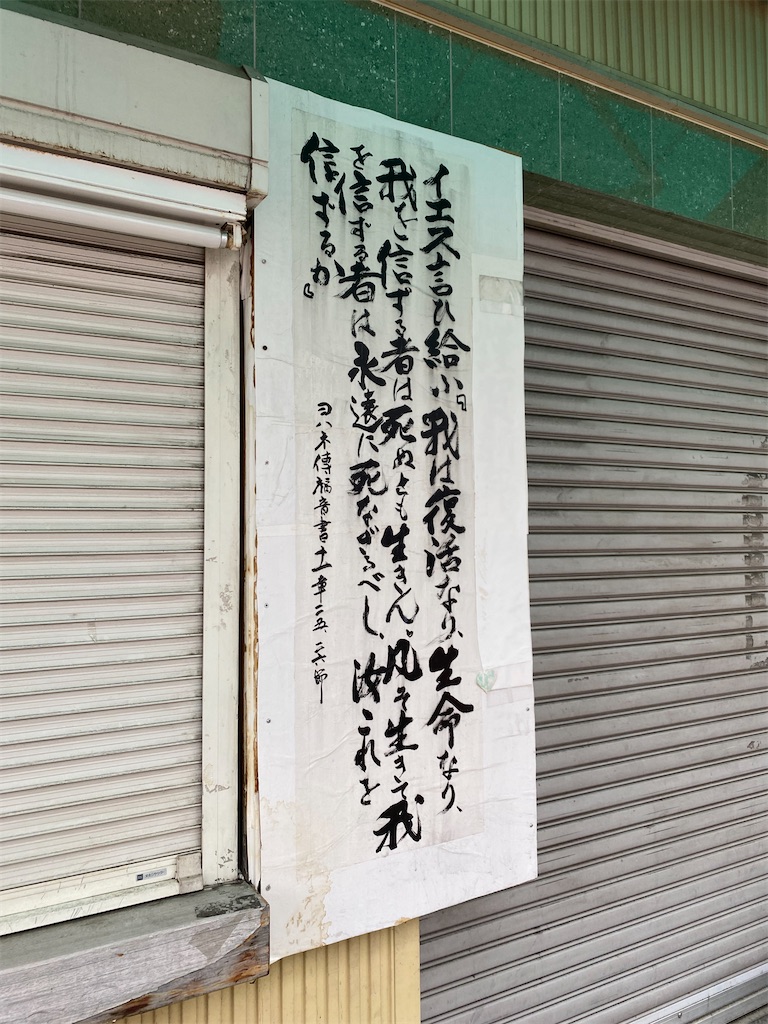 イエス言ひ給ふ『我は復活なり、生命なり、
我を信ずる者は死ぬとも生きん。凡そ生きて我
を信ずる者は永遠に死なざるべし、汝これを
信ずるか』
ヨハネ傳福音書十一章二五、二六節